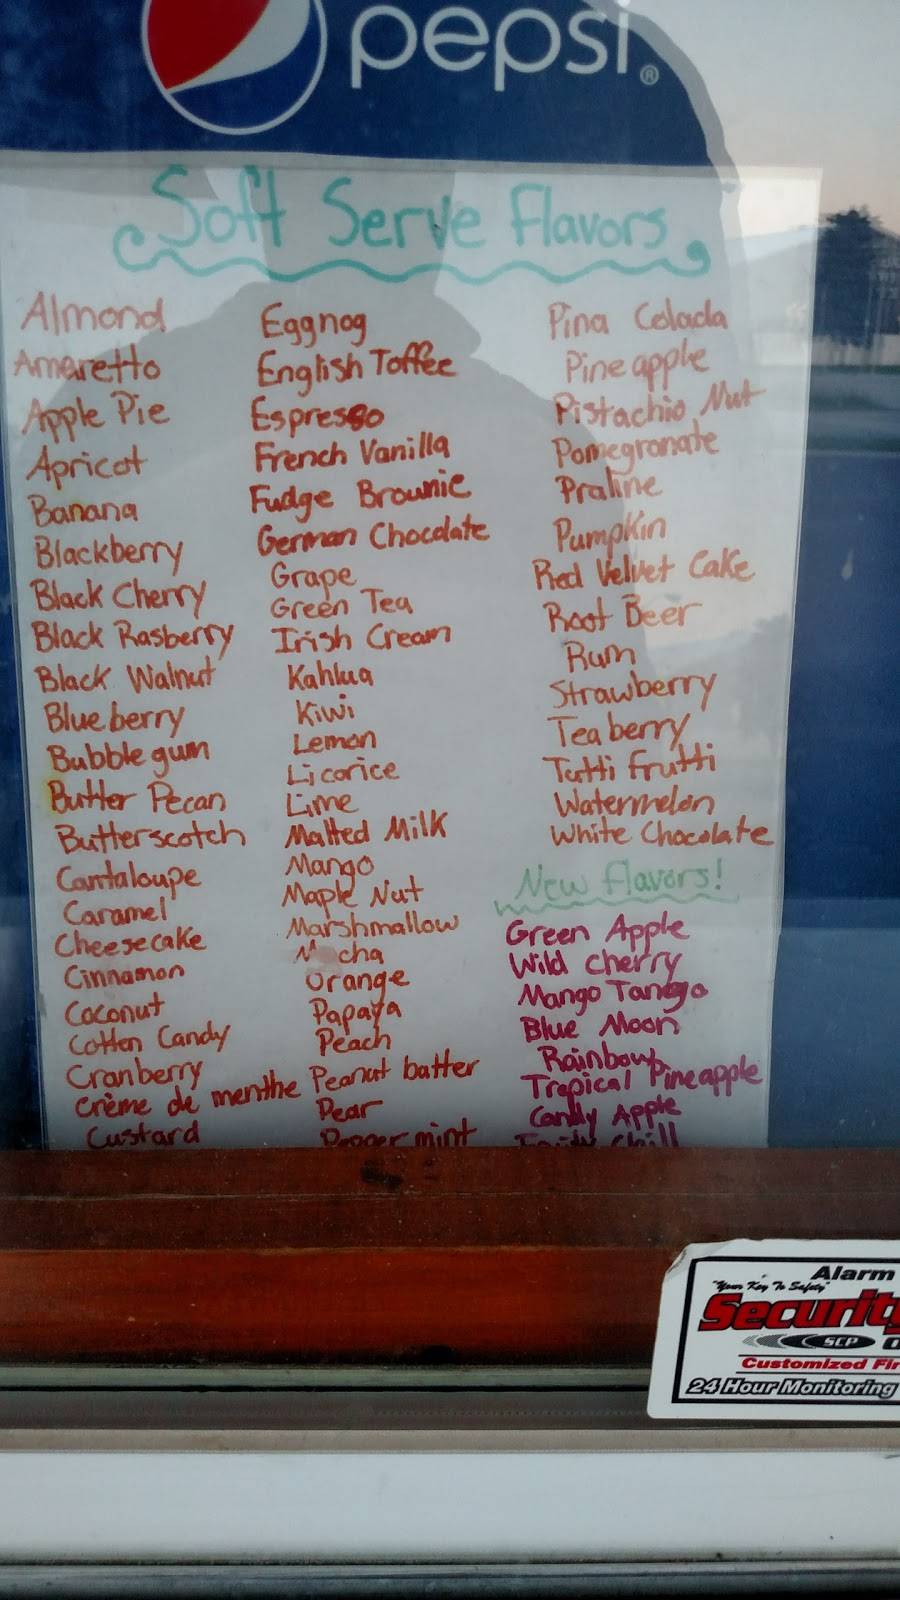 pepsi®
Soft Serve Flavors
Almond
Amaretto
Apple Pie
Apricot
Banana
Blackberry
Black Cherry
Black Rasberry
Black Walnut
Blueberry
Bubblegum
Butter Pecan
Butterscotch
Cantaloupe
Caramel
Cheesecake
Cinnamon
Coconut
Cotton Candy
Cranberry
Crème de menthe
Custard
Eggnog
English Toffee
Espresso
French Vanilla
Fudge Brownie
German Chocolate
Grape
Green Tea
Irish Cream
Kahlua
Kiwi
Lemon
Licorice
Lime
Malted Milk
Mango
Maple Nut
Marshmallow
Mocha
Orange
Papaya
Peach
Peanut batter
Pear
Peppermint
Pina Colada
Pineapple
Pistachio Nut
Pomegranate
Praline
Pumpkin
Red Velvet Cake
Root Beer
Rum
Strawberry
Teaberry
Tutti Frutti
Watermelon
White Chocolate
New Flavors!
Green Apple
Wild Cherry
Mango Tango
Blue Moon
Rainbow
Tropical Pineapple
Candy Apple
Chill
Alarm
"Your Key To Safety"
Security
SCP
Customized Fir
24 Hour Monitoring